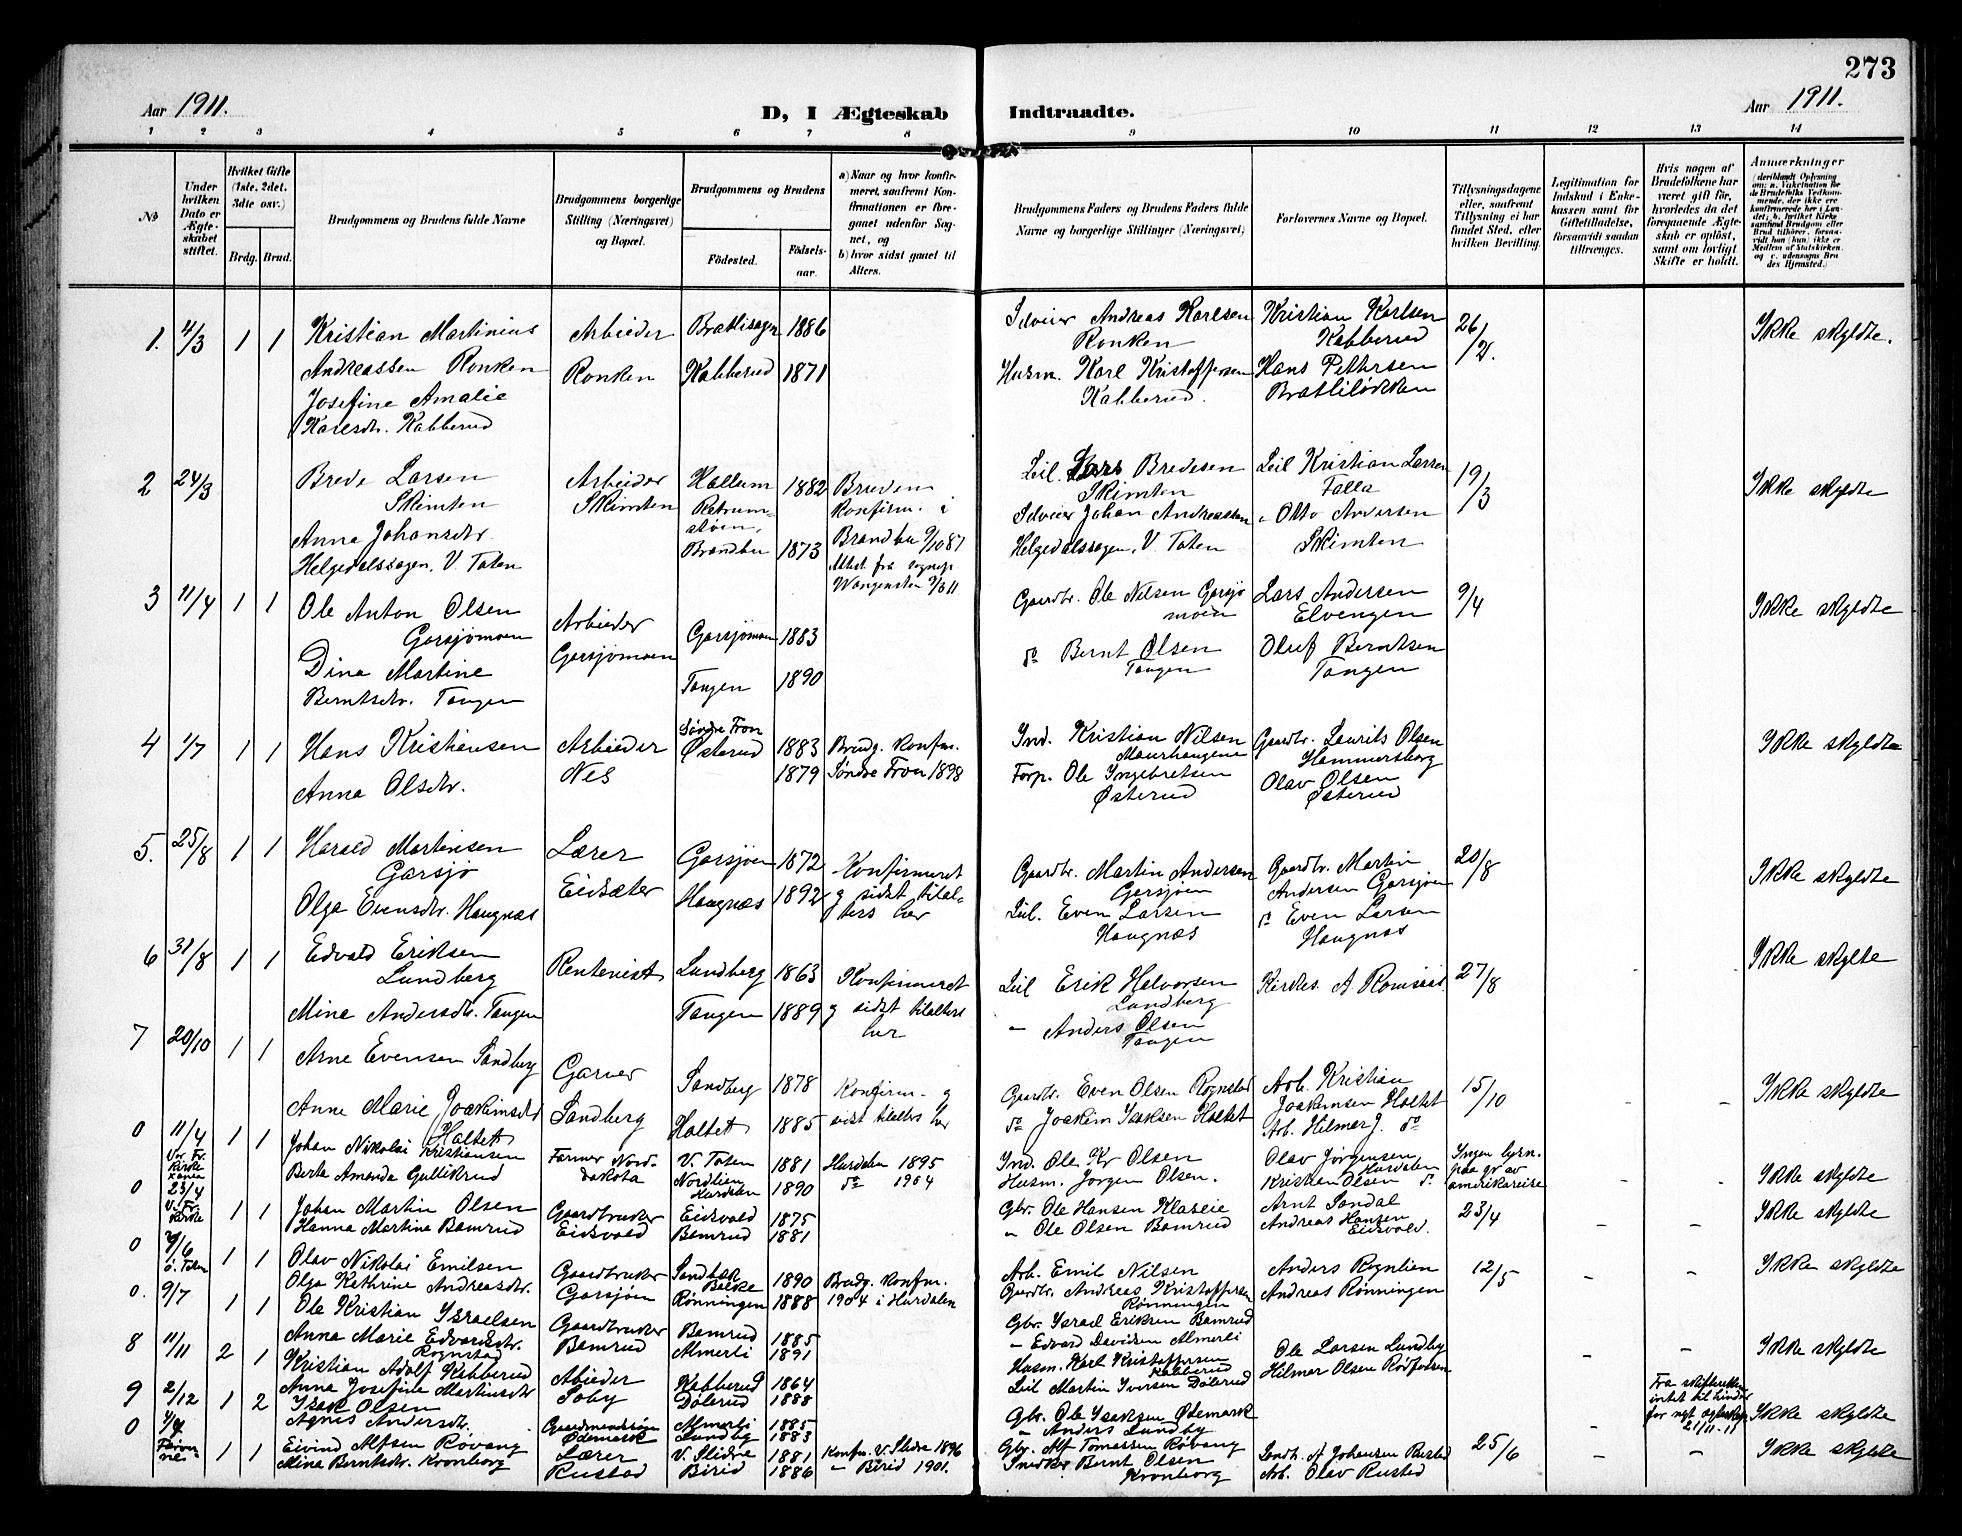 273
Aar 1911.
D, I Ægteskab Indtraadte.
Aar 1911.
1 2 3 4 5 6 7 8 9 10 11 12 13 14
No
Under hvilken Dato er Ægteskabet stiftet.
Hvilket Gifte (1ste, 2det, 3die osv.)
Brdg. Brud.
Brudgommens og Brudens fulde Navne
Brudgommens borgerlige Stilling (Næringsvei) og Bopæl.
Brudgommens og Brudens
Fødested.
Fødselsaar.
a) Naar og hvor konfirmeret, saafremt Konfirmationen er foregaaet udenfor Sognet, og
b) hvor sidst gaaet til Alters.
Brudgommens Faders og Brudens Faders fulde Navne og borgerlige Stillinger (Næringsvei)
Forlovernes Navne og Bopæl.
Tillysningsdagene eller, saafremt Tillysning ei har fundet Sted, efter hvilken Bevilling.
Legitimation for Indskud i Enkekassen samt for Giftetilladelse, forsaavidt saadan tiltrænges.
Hvis nogen af Brudefolkene har været gift før, hvorledes da det foregaaende Ægteskab er opløst, samt om lovligt Skifte er holdt.
Anmærkninger
1. 4/3 1 1 Kristian Martinius Andreassen Ronken
Arbeider Ronken
Brattisogn 1886
Idveier Andreas Karlsen Ronken
Kristian Karlsen Kabberud
26/2.
Ikke skyldte.
Josefine Amalie Karlsdtr. Kabberud
Kabberud 1871
Husm. Karl Kristoffersen Kabberud.
Hans Pettersen Brattiløkken
2 24/3 Brede Larsen Skimten
Arbeider Skimten
Hallum 1882
Bruden konfirm. i Brandbu 9/10 87
Leil. Lars Bredesen Skimten
Leil Kristian Larsen Falla
19/3
Ikke skyldte
Anna Johansdtr. Helgedalssagen, V. Toten
Brandbu 1873
Idveier Johan Andreassen Helgedalssagen, V. Toten
" Otto Andersen Skimten
3 11/4 1 1 Ole Anton Olsen Garsjømoen
Arbeider Garsjømoen
Garsjømoen 1883
Gaardbr. Ole Nilsen Garsjømoen
Lars Andersen Elvengen
9/4
Ikke skyldte
Dina Martine Berntsdtr. Tangen
Tangen 1890
do Bernt Olsen Tangen
Oluf Berntsen Tangen
4 1/7 1 1 Hans Kristiansen
Arbeider Nes
Søndre Fron
Østerud 1883
Brudg. konfm. Søndre Fron 1898
Ind. Kristian Nilsen Maurhaugene
Gaardbr. Laurits Olsen Hammersborg
Ikke skyldte
Anna Olsdtr.
1879
Forp. Ole Ingebretsen Østerud
Olav Olsen Østerud
5. 25/8 1 1 Harald Martinsen Garsjø
Lærer Eidsæter
Garsjøen 1872
Konfirmeret og sidst tilalters her
Gaardbr. Martin Andersen Garsjøen
Gaardbr. Martin Andersen Garsjøen
20/8
Ikke skyldte
Olga Evensdtr. Haugnæs
Haugnæs 1892
Leil. Even Larsen Haugnæs
do Even Larsen Haugnæs
6 31/8 1 1 Edvald Eriksen Lundberg
Rentenist
Lundberg 1863
Konfirmeret og sidst tilalters her
Leil Erik Halvorsen Lundberg
Kirkes. A Romsaas.
27/8
Ikke skylte
Mina Andersdtr. Tangen
Tangen 1889
" Anders Olsen Tangen
7 20/10 1 1 Arne Evensen Sandberg
Garver Sandberg
Sandberg 1878
Konfirm. og sidst tilalters her
Gaardbr. Even Olsen Rognstad
Arb. Kristian Joakimsen Haltet
15/10
Ikke skyldte
Anne Marie Joakimsdtr Haltet
Haltet 1885
do Joakim Isaksen Haltet
Arb. Hilmer J. do
0 11/4 Vor Fr. Kirke 1 1 Johan Nikolai Kristiansen
Farmer Norddakota
V. Toten 1881
Hurdalen 1895
Ind. Ole Kr Olsen
Olav Jørgensen Hurdalen
Ingen lysn. paa gr av amerikareise
Ikke skyldte
Berte Amanda Gullikrud
Nordlien Hurdalen 1890
do 1904
Husm. Jørgen Olsen.
Kristian Olsen do
0 23/4 V. Fr. Kirke 1 1 Johan Martin Olsen
Gaardbruker Eidsvold
Eidsvold 1875
Gbr. Ole Hansen Klaseie
Arnt Sandal
23/4
Ikke skyldte
Hanna Martina Bamrud
Bamrud 1881
" Ole Olsen Bamrud
Andreas Hansen Eidsvold.
0 4/6 ö. Toten 1 1 Olav Nikolai Emilsen
Gaardbruker Garsjøen
Sandbæk Balke 1890
Brudg. konfm. 1904 i Hurdalen
Arb. Emil Nilsen
Anders Rognlien
12/5
Ikke skyldte
Olga Kathrine Andreasdtr.
Rønningen 1888
Gardbr. Andreas Kristoffersen Rønningen
Andreas Rønningen
0. 9/7 1 1 Ole Kristian Israelsen
Gaardbruker Bamrud
Bamrud 1885
Gbr. Israel Eriksen Bamrud
Anna Marie Edvardsdtr. Rognstad
Almerli 1891
" Edvard Davidsen Almerli
8 11/11 2 1 Kristian Adolf Kabberud
Abeider Soby
Kabberud 1864
Husm. Karl Kristoffersen Kabberud
Ole Larsen Lundby
Ikke skyldte
Anna Josefine Martinsdtr
Dølerud 1888
Leil Martin Iversen Dølerud
Hilmer Olsen
9 2/12 1 2 Isak Olsen
Gaardmandssøn Ødemark
Almerli 1885
Gbr. Ole Isaksen Ødemark
Fra skifteretten intet til hinder for nyt egteskap 21/11.11
Ikke skyldte
Agnes Andersdtr.
Lundby 1883
" Anders Lundby
0 1 1 Eivind Alfsen Røvang
Lærer Rustad
V. Slidre 1881
Konfm. V. Slidre 1896
Gbr. Alf Tomassen Røvang
Landh. A Johansen Rustad
25/6
Ikke skyldte
Mina Berntsdtr. Kronborg
Birid 1886
" Birid 1901.
Snedker Bernt Olsen Kronborg
Arb. Olav Rustad